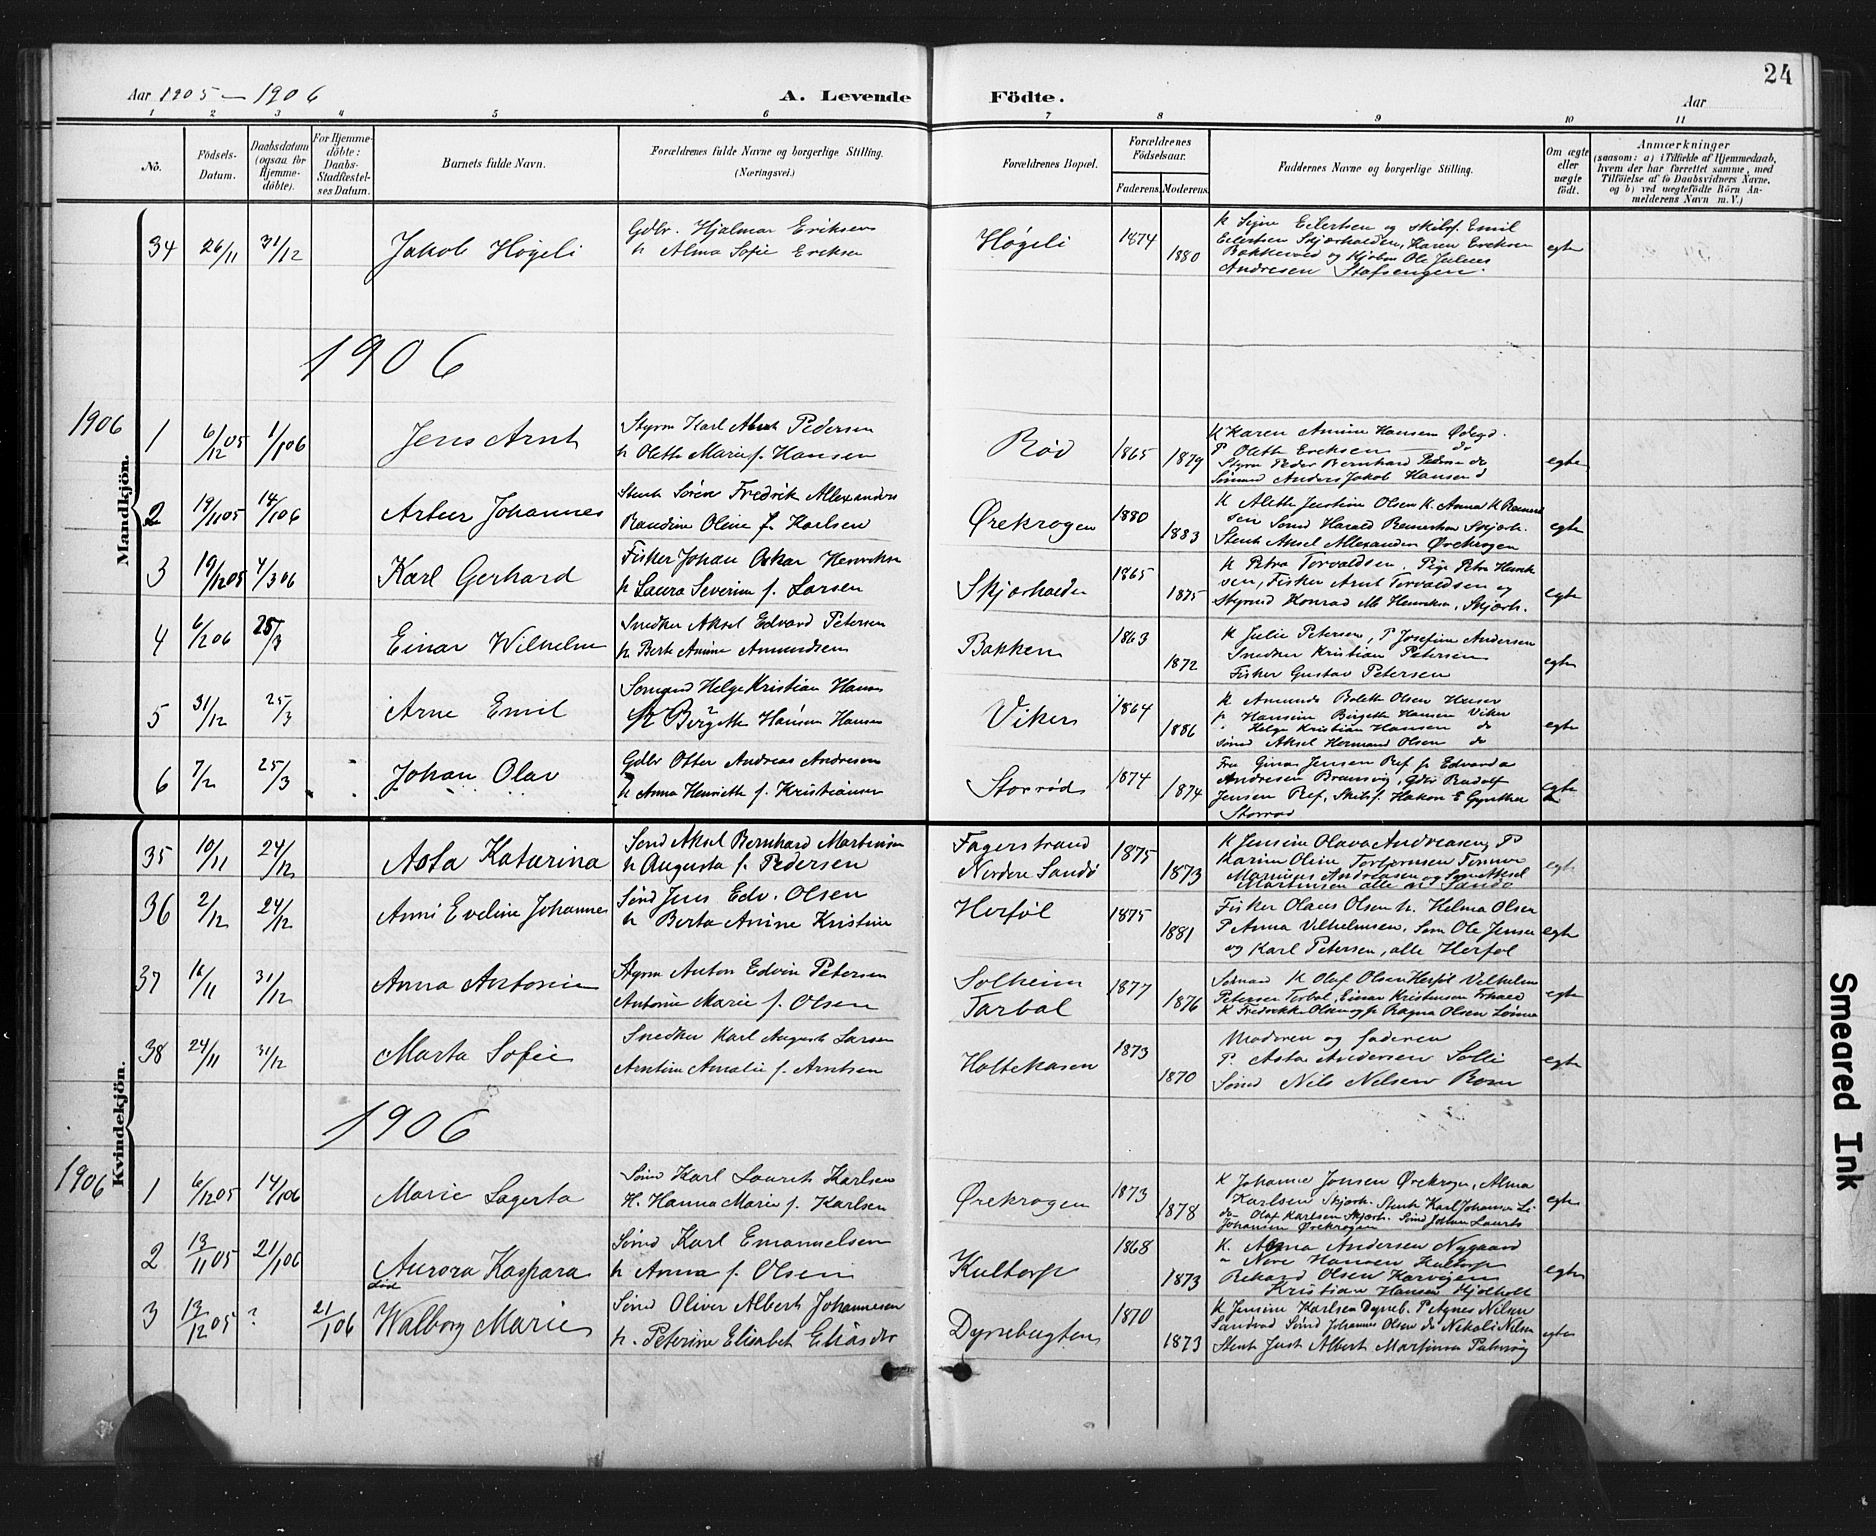 24
Aar 1905 - 1906
A. Levende Födte.
Aar
1 2 3 4 5 6 7 8 9 10 11
No.
Födsels-Datum.
Daabsdatum (ogsaa for Hjemme-döbte).
For Hjemme-döbte: Daabs-Stadfæstel-ses Datum.
Barnets fulde Navn.
Forældrenes fulde Navne og borgerlige Stilling. (Næringsvei.)
Forældrenes Bopæl.
Forældrenes Födselsaar.
Faderens. Moderens.
Faddernes Navne og borgerlige Stilling.
Om ægte eller uægte födt.
Anmærkninger
(saasom: a) i Tilfælde af Hjemmedaab, hvem der har forrettet samme, med Tilföielse af to Daabsvidners Navne, og b) ved uægtefödte Börn An-melderens Navn m. V.)
Mandkjön.
34 26/11 31/12 Jakob Høgeli
Gdbr. Hjalmar Eriksen
h Alma Sofie Eriksen
Høgeli 1874 1880
K Signe Eilertsen og skibsf. Emil
Eilertsen Skjærhalden, Karen Ereksen
Bakkeved og Ole Julius
Andresen Stafsengen.
egte
1906
1906
1 6/12 05 1/1 06 Jens Arnt
Styrm Karl Albert Pedersen
h Oleth Marie f. Hansen
Rød 1865 1879
K Karen Amine Hansen Ødegd.
P Oleth Ereksen do
Styrm Peder Bernhard Pedersen do
Sømand Anders Jakob Hansen d
egte
2 19/11 05 14/1 06 Artur Johannes
Stenh Sören Fredrik Allexanders
Raudine Oline f. Karlsen
Ørekrogen 1880 1883
K Alethe Justine Olsen K. Anna K Reinert
sen Sømd Harald Reinertsen Skjærh.
Stenh Aksel Allexander Ørekrogen
egte
3 19/12 05 4/3 06 Karl Gerhard
Fisker Johan Oskar Henriksen
h Laura Severine f. Larsen
Skjærhalden 1865 1875
K Petra Torvaldsen, Pige Petra Henrik
sen, Fisker Arnt Torvaldsen og
Styrmd Konrad M Henriksen, Skjærh.
egte
4 6/2 06 25/3 Einar Wilhelm
Snedker Aksel Edvard Petersen
h Berte Amine Amundsen
Bakken 1863 1872
K Julie Petersen, P Josefine Andersen
Snedker Kristian Petersen
Fisker Gustav Petersen
egte
5 31/12 25/3 Arne Emil
Sømand Helge Kristian Hansen
h Birgette Hansen Hansen
Viker 1864 1886
K Amunda Bolette Olsen
p Hansine Birgette Hansen Viker
" Helge Kristian Hansen do
Sømd Aksel Hermand Olsen do
egte
6 7/2 25/3 Johan Olav
Gdbr Otter Andreas Andresen
h Anna Henriette f. Kristiansen
Storrød 1874 1874
Fru Gina Jensen Ref p. Edvarda
Andresen Bramsvig, Gdbr Rudolf
Jensen Ref, Skibsf. Hakon E Gynther
Storrød
egte
Kvindekjön.
35 10/11 24/12 Asta Katarina
Sømd Aksel Bernhard Martinsen
h Augusta f. Pedersen
Fagerstrand
Nordre Sandø 1875 1873
K Jensine Olava Andreasen, P
Karine Oline Torbjørnsen Tømmer
Magnus Andreasen og Søm Aksel
Martinsen alle af Sandø
egte
36 2/12 24/12 Anni Eveline Johannes
Sømd Jens Edv. Olsen
h Berta Amine Kristine
Herføl 1875 1881
Fisker Olaus Olsen h. Helma Olsen
P Anna Vilhelmsen, Søm Ole Jensen
og Karl Petersen, alle Herføl
egte
37 16/11 31/12 Anna Antonie
Styrm Anton Edvin Petersen
Antonie Marie f. Olsen
Solheim
Tarbal 1877 1876
Sømand K Olaf Olsen Herføl Vilhelm
Petersen Torbal, Einar Kristensen
K Fredrikke Olsen og p Ragna Olsen
egte
38 24/11 31/12 Marta Sofie
Snedker Karl August Larsen
Arntine Amalie f. Arntsen
Holtekasen 1873 1870
Moderen og faderen
P. Asta Andersen Solli
Sømd Nils Nelsen Roen
egte
1906
1906
1 6/12 05 14/1 06 Marie Lagerta
Sømd Karl Laurits Karlsen
H. Hanna Marie f. Karlsen
Ørekrogen 1873 1878
K Johanne Jonsen Ørekrogen, Alma
Karlsen Skjærh. Stenh Karl Johansen Li
do Olaf Karlsen Skjærh. Sømd Johan Laurits
Johansen Ørekrogen
egte
2 13/11 05 21/1 06 Aurora Kaspara
Sømd Karl Emanuelsen
h Anna f. Olsen
Kultorp 1868 1873
K. Anna Andersen Nygaard
" Hansen Kultorp
Rekard Olsen Karvigen
Kristian Hansen Kjølholt
egte
død
3 13/12 05 ? 21/1 06 Walborg Marie
Sømd Oliver Albert Johannesen
h. Peterine Elisabet Eliasdr
Dynebugten 1870 1873
K Jensine Karlsen Dyneb. P Agnes Nilsen
Sandrød Sømd Johannes Olsen do Nikoli Nilsen
Stenh Just Albert Martinsen
egte
Smeared Ink